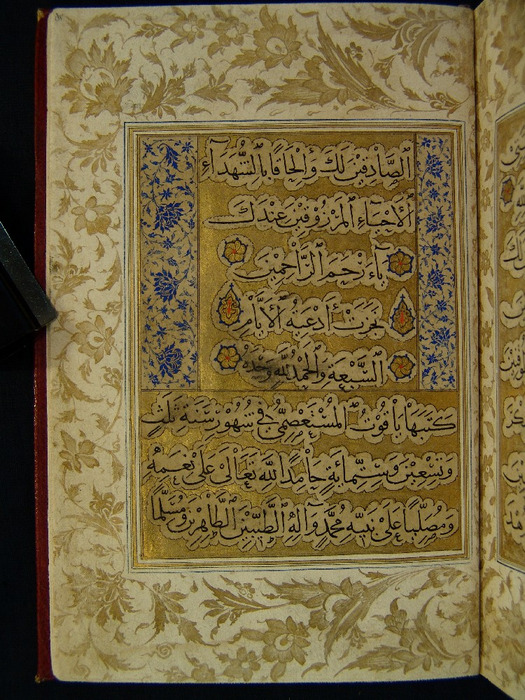 الصَّادِقِينَ لَكَ وَالْحَاقًا بِالشُّهَدَآءِ
الْأَحْيَآءِ الْمَرْزُوقِينَ عِنْدَكَ
يَا أَرْحَمَ الرَّاحِمِينَ
نَجَزَتْ أَدْعِيَةُ الْأَيَّامِ
السَّبْعَةِ وَالْحَمْدُ لِلّٰهِ وَحْدَهُ
كَتَبَهَا يَاقُوتُ الْمُسْتَعْصِمِيُّ فِي شُهُورِ سَنَةِ ثَلٰثٍ
وَتِسْعِينَ وَسِتِّمِائَةٍ حَامِدًا لِلّٰهِ تَعَالَى عَلَى نِعَمِهِ
وَمُصَلِّيًا عَلَى نَبِيِّهِ مُحَمَّدٍ وَآلِهِ الطَّيِّبِينَ الطَّاهِرِينَ وَمُسَلِّمًا